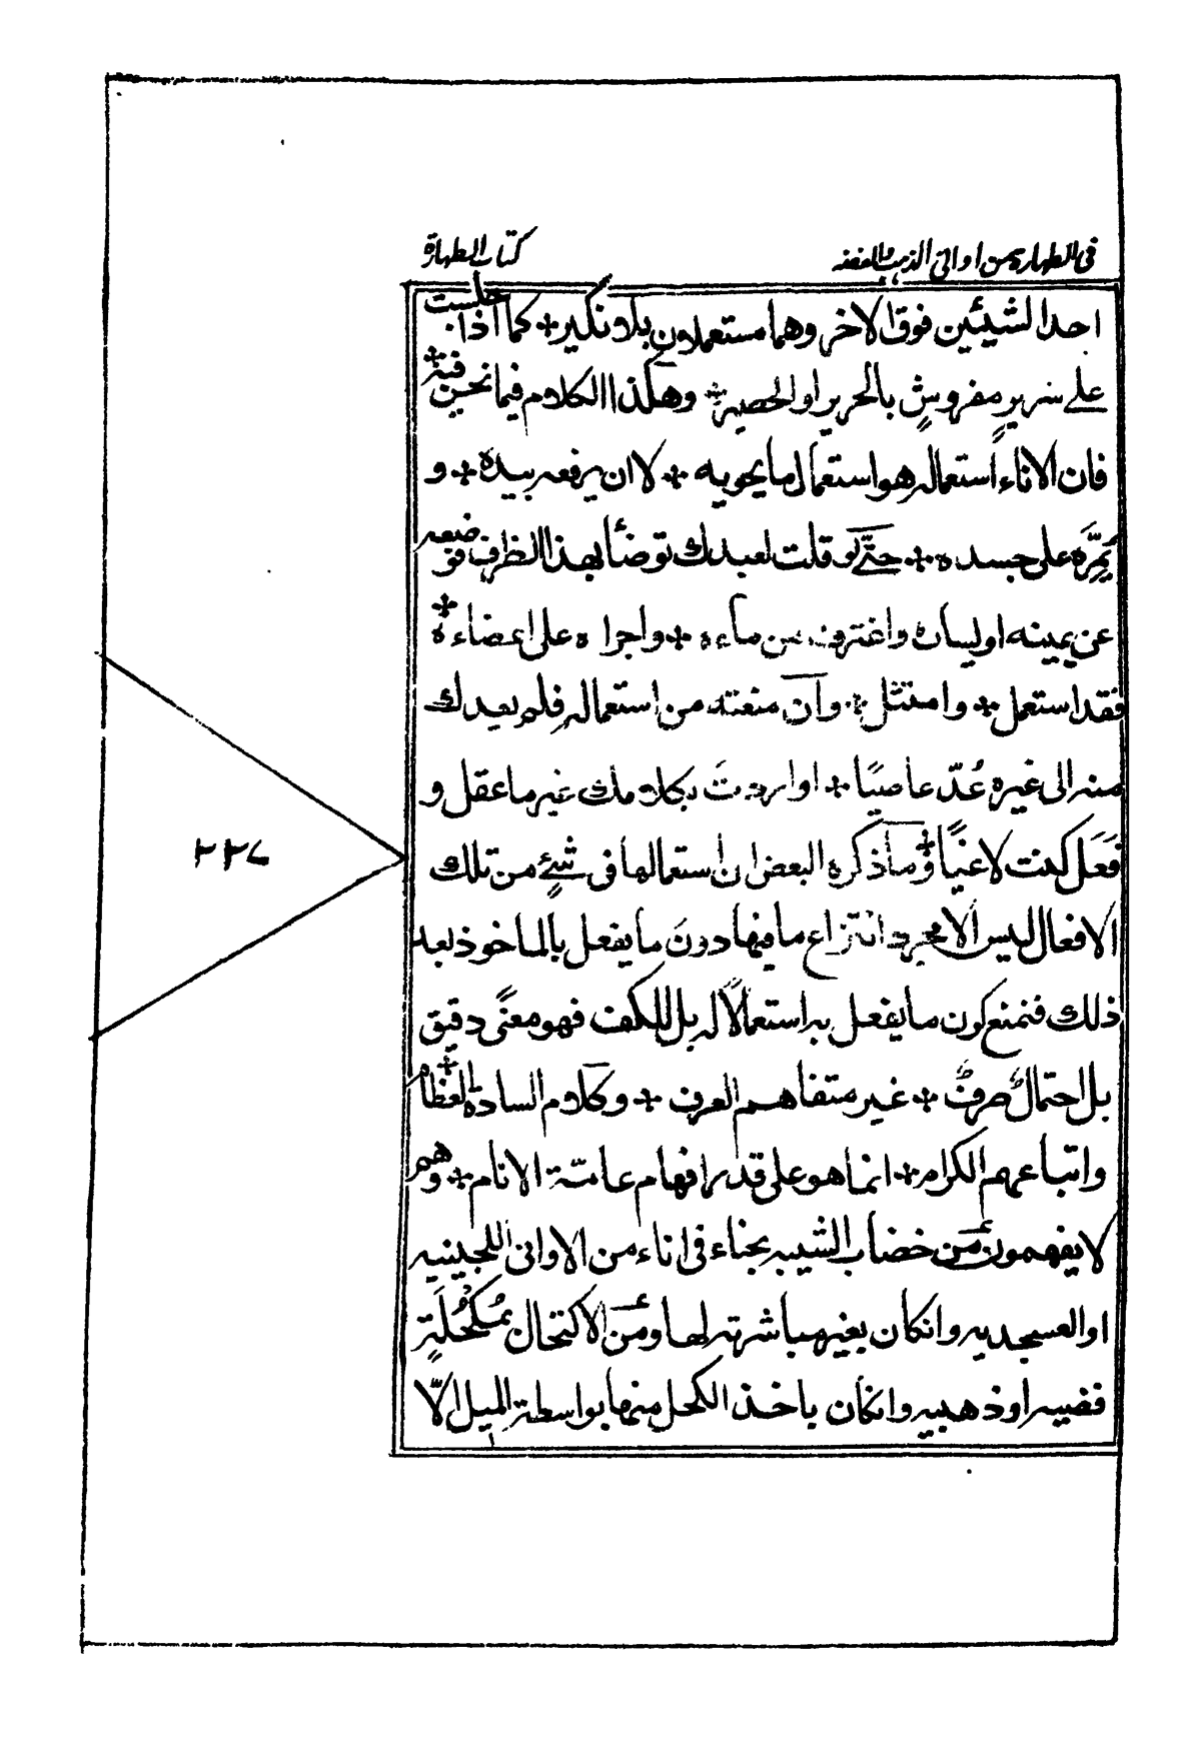 في الطهارة من اواني الذهب والفضه
كتاب الطهارة
احد الشيئين فوق الاخر وهما مستعملان بلا نكير * كما اذا جلست
على سرير مفروش بالحرير او الحصير * وهكذا الكلام فيما نحن فيه *
فان الاناء استعماله هو استعمال ما يحويه * لا ان يرفعه بيده * و
يُمِرَّه على جسده * حتّى لو قلت لعبدك توضأ بهذا الظرف فوضعه
عن يمينه او يساره واغترف من ماءه * واجراه على اعضاءه *
فقد استعمل * وامتثل * وان منعته من استعماله فلم يعدك
منه الى غيره عُدّ عاصيًا * او اردتَ بكلامك غير ما عقل و
فَعَل كنت لاغيًا * وما ذكره البعض ان استعمالها في شيء من تلك
الافعال ليس الا مجرد انتزاع ما فيها دونَ ما يفعل بالماخوذ بعد
ذلك فنمنع كون ما يفعل به استعمالًا له بل للكف فهو معنًى دقيق
بل احتمالٌ صرفٌ * غير متفاهم العرف * وكلام السادة العظام *
واتباعهم الكرام * انما هو على قدر افهام عامّة الانام * وهم
لا يفهمون من خضاب الشيبه بحناء في اناء من الاواني اللجينيه
او العسجديه وانكان بغير مباشرته لها ومن الاكتحال بمُكحُلَةٍ
فضيه او ذهبيه وانكان باخذ الكحل منها بواسطة الميل الّا
٢٢٧